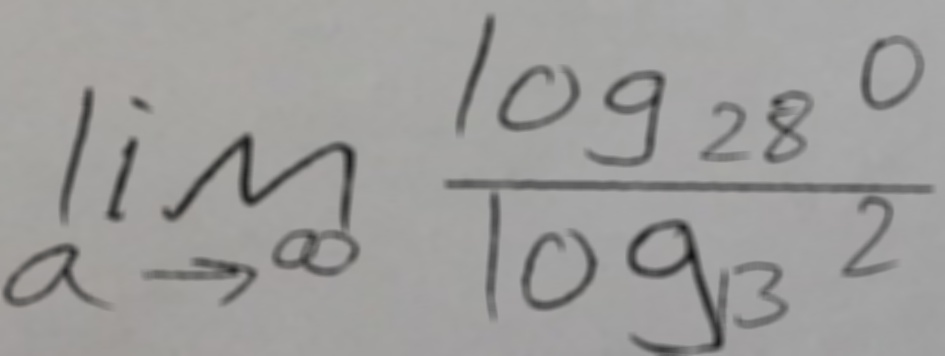 \lim_{a \to \infty} \frac{\log_{28} 0}{\log_{13} 2}